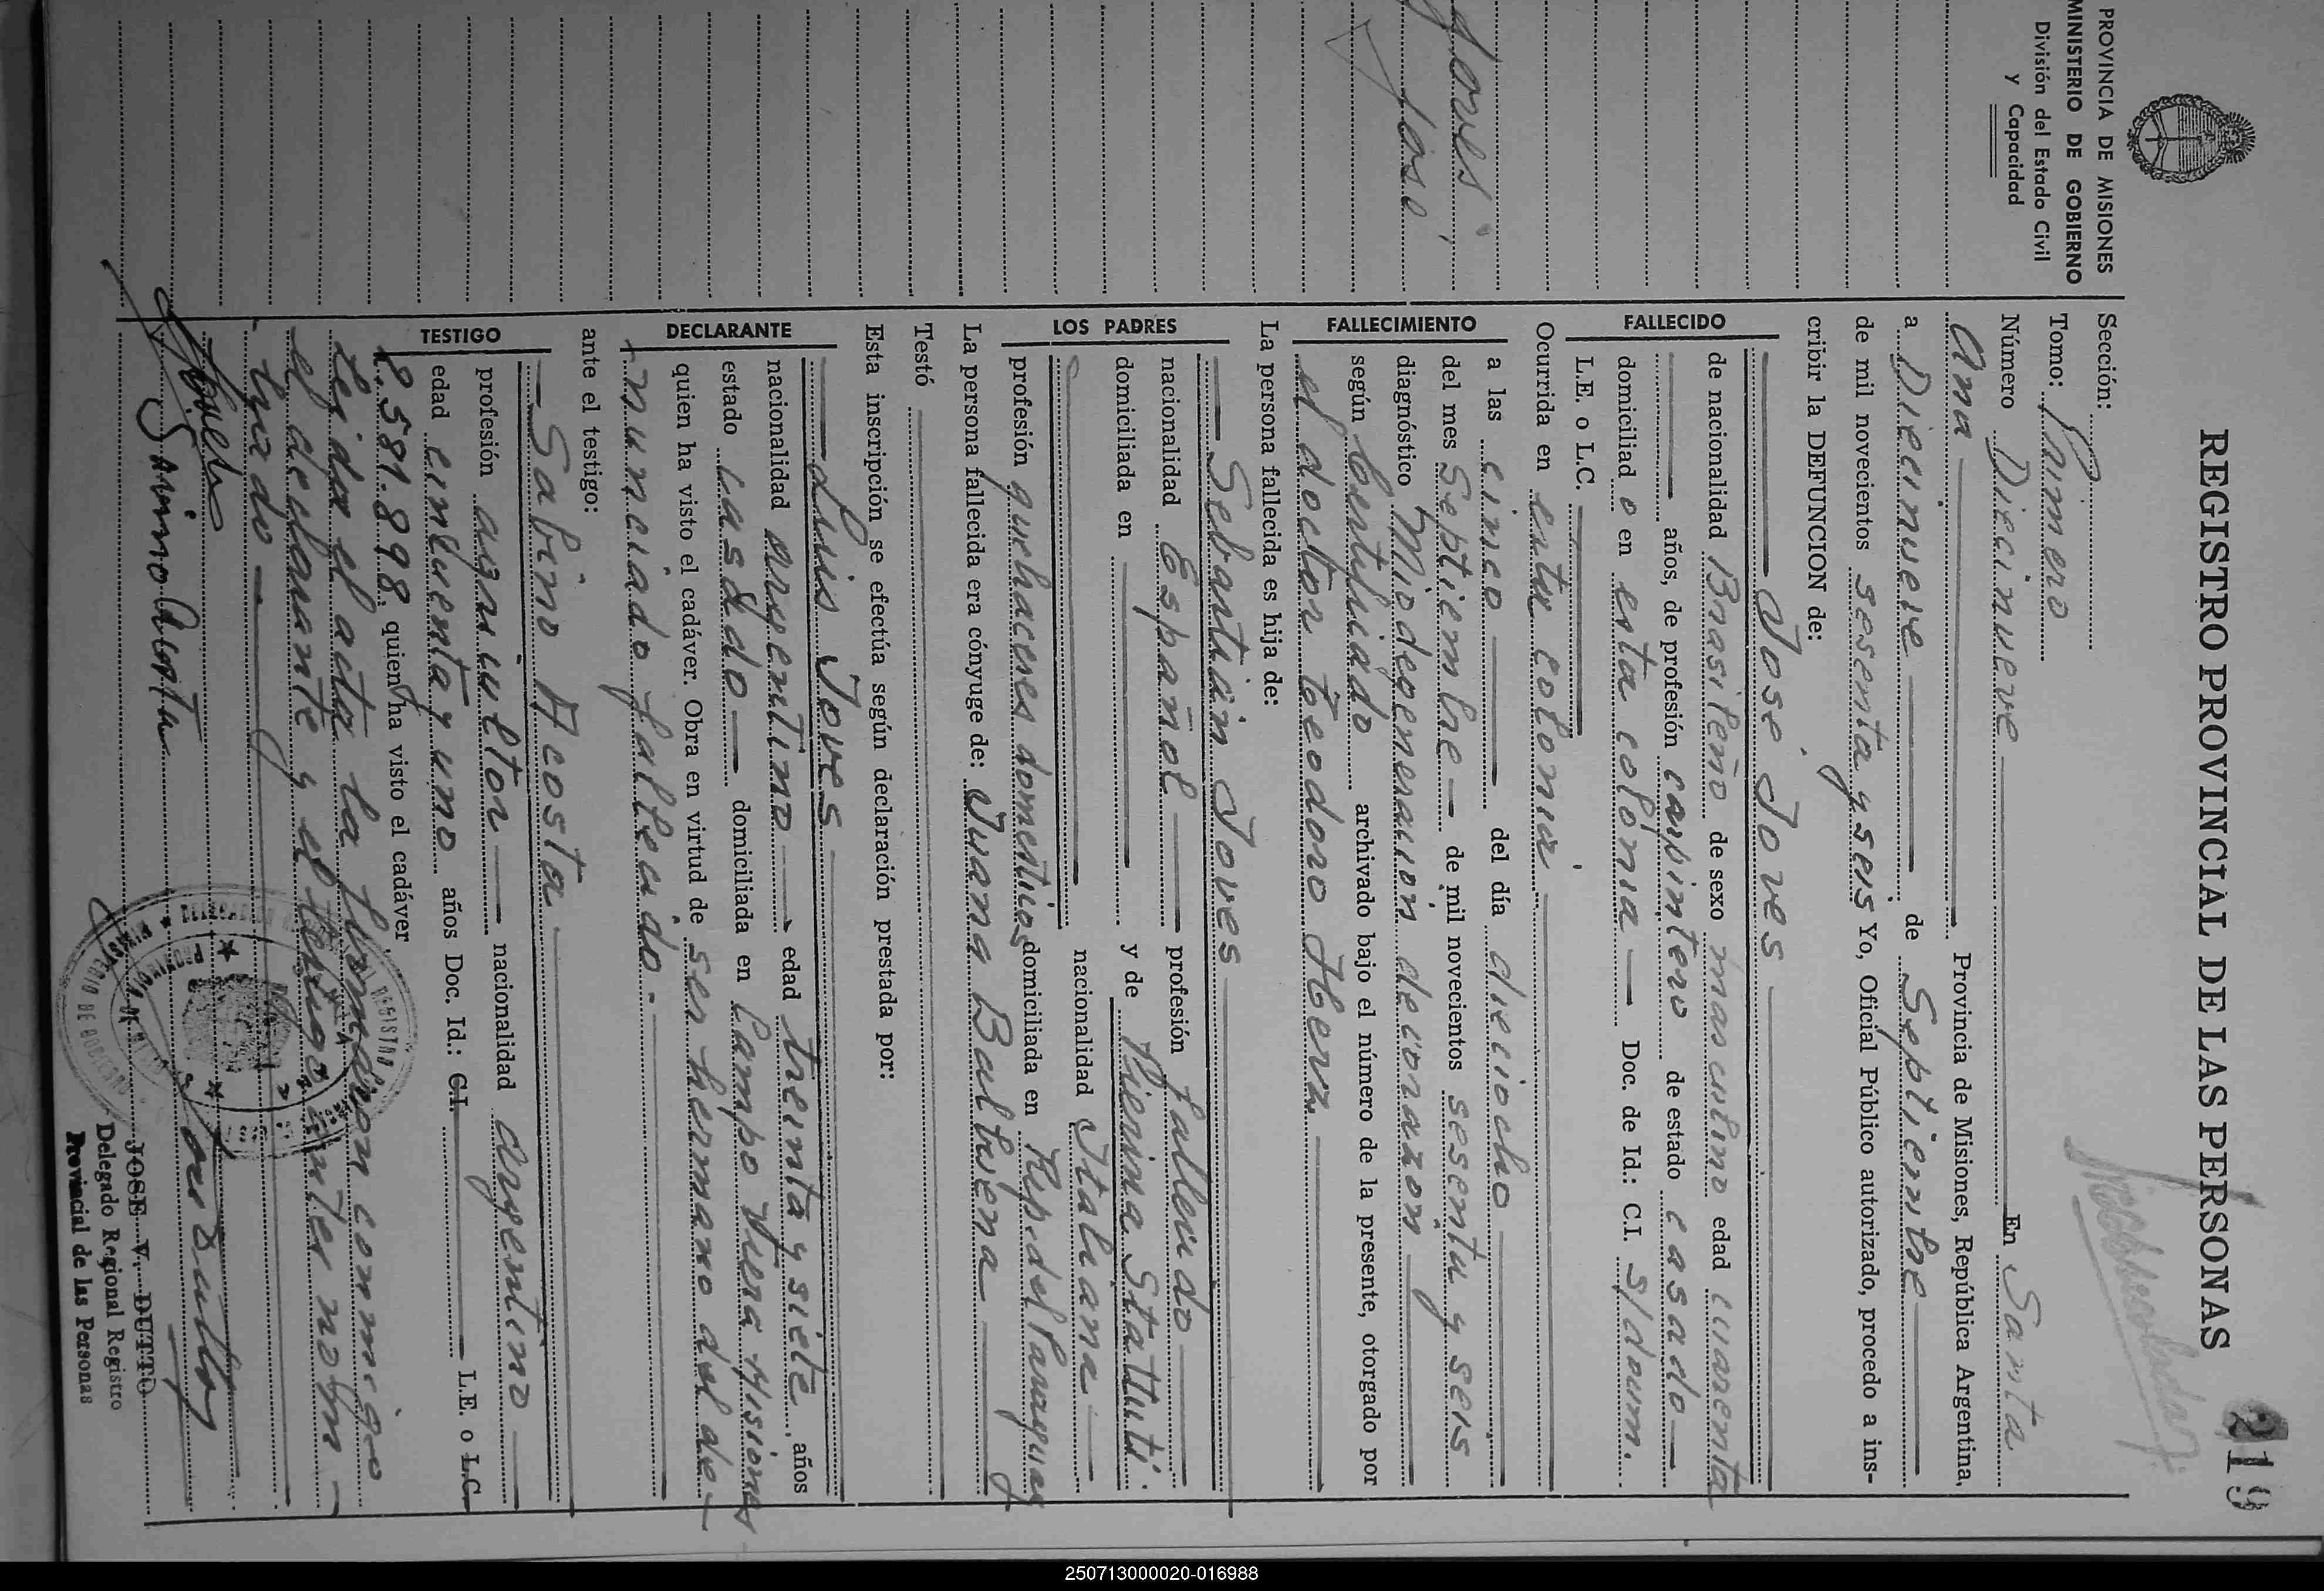 219
REGISTRO PROVINCIAL DE LAS PERSONAS
PROVINCIA DE MISIONES
MINISTERIO DE GOBIERNO
División del Estado Civil
y Capacidad
Joves,
José
Sección:
Tomo: Primero
Número Diecinueve En Santa
Ana Provincia de Misiones, República Argentina,
a Diecinueve de Septiembre
de mil novecientos sesenta y seis Yo, Oficial Público autorizado, procedo a ins-
cribir la DEFUNCION de:
FALLECIDO
José Joves
de nacionalidad Brasileño de sexo masculino edad cuarenta
años, de profesión carpintero de estado casado
domiciliad o en esta colonia Doc. de Id.: C.I. s/doum.
L.E. o L.C.
FALLECIMIENTO
Ocurrida en esta colonia
a las cinco del día dieciocho
del mes Septiembre de mil novecientos sesenta y seis
diagnóstico Miodegeneracion de corazon
según certificado archivado bajo el número de la presente, otorgado por
el doctor Teodoro
La persona fallecida es hija de:
LOS PADRES
Sebastián Joves
nacionalidad Español profesión fallecido
domiciliada en y de Pierina
nacionalidad Italiana
profesión quehaceres domesticos domiciliada en Rep. del Paraguay
La persona fallecida era cónyuge de: Juana Balbuena
Testó
Esta inscripción se efectúa según declaración prestada por:
DECLARANTE
Luis Joves
nacionalidad argentino edad treinta y siete años
estado casado domiciliada en Campo Viera Misiones
quien ha visto el cadáver. Obra en virtud de ser hermano del de-
nunciado fallecido.-
ante el testigo:
TESTIGO
Sabino Acosta
profesión agricultor nacionalidad argentino
edad cincuenta y uno años Doc. Id.: C.I. L.E. o L.C.
2.581.898 quien ha visto el cadáver
Leida el acta la firmaron conmigo
el declarante y el testigo antes nom-
brado
Sabino Acosta
JOSE V. DUTTO
Delegado Regional Registro
Provincial de las Personas
250713000020-016988